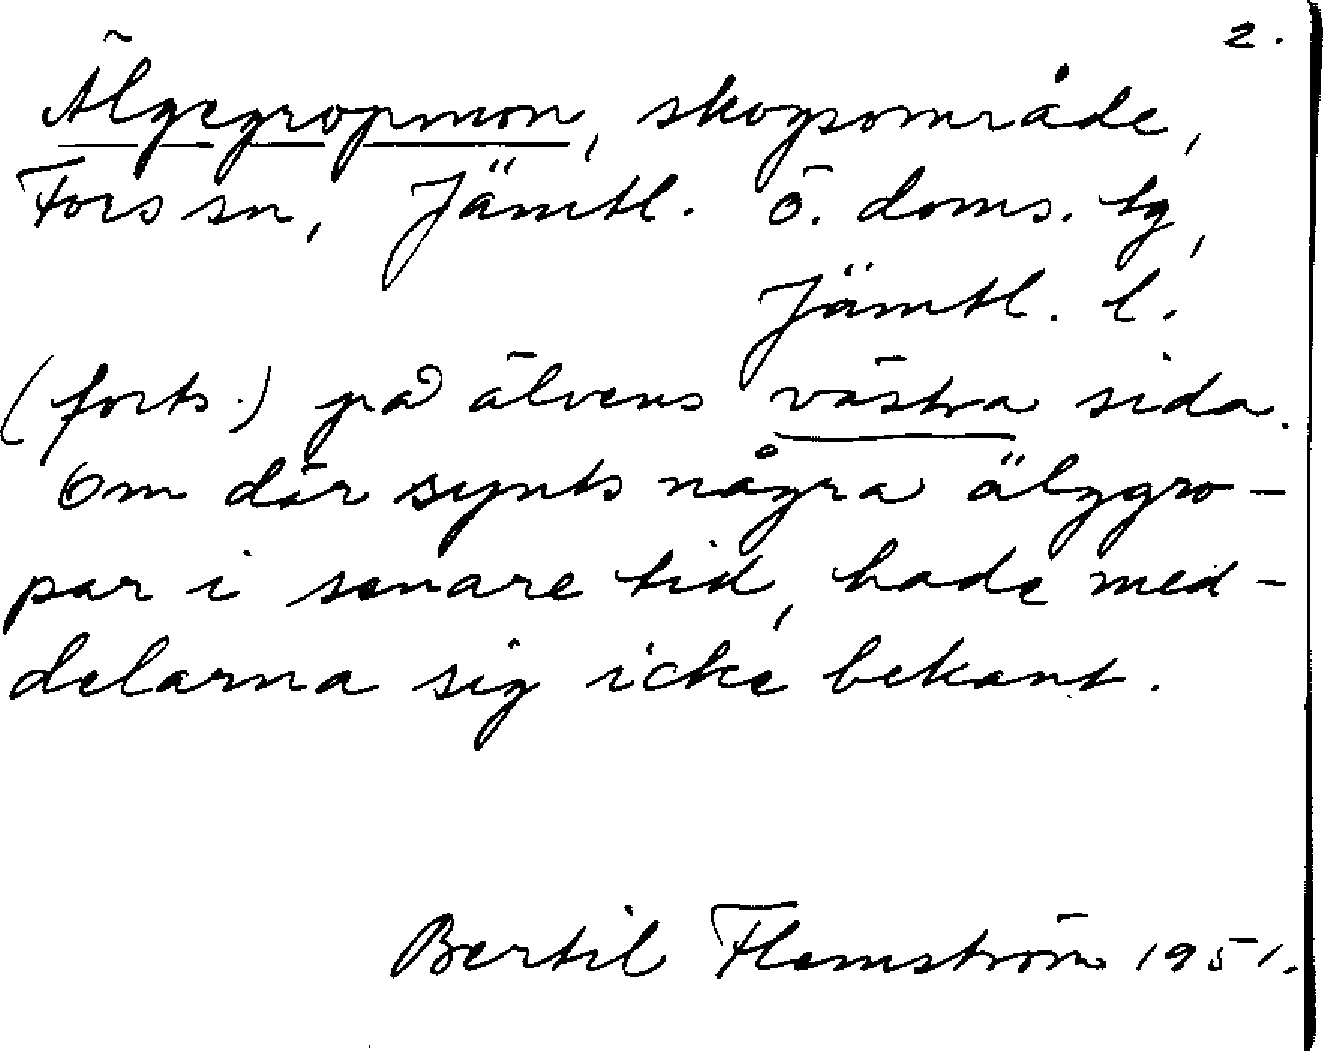 2.
Älgegropmon, skogsområde,
Fors sn, Jämtl. ö. doms. tg,
Jämtl. l.
(forts.) på älvens västra sida.
Om där synts några älggro-
par i senare tid, hade med-
delarna sig icke bekant.
Bertil Flemström 1951.